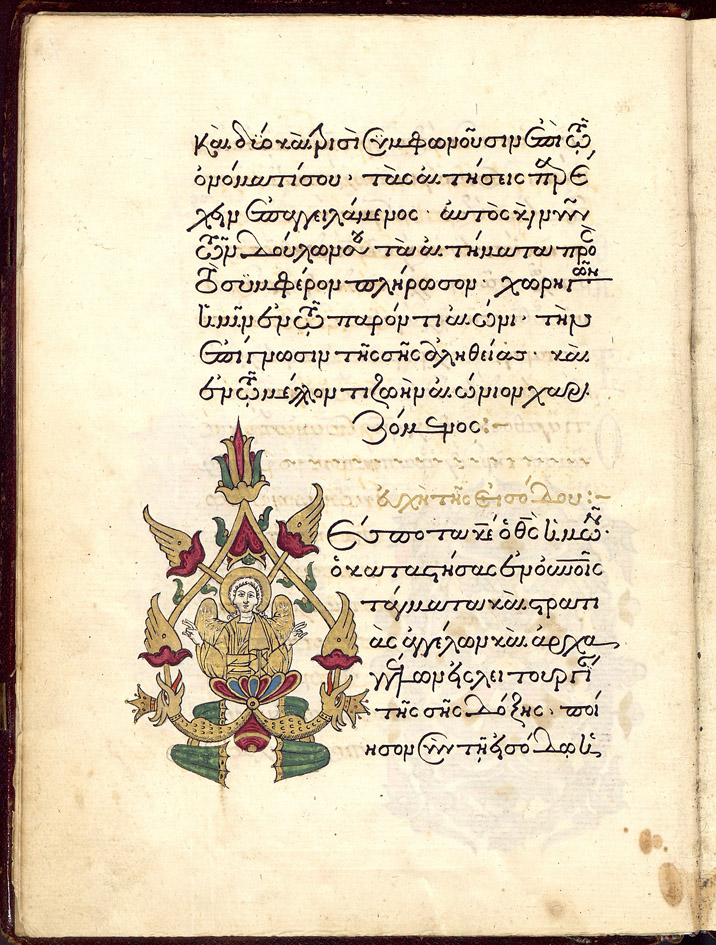 Καὶ δύο καὶ τρισὶ συμφωνοῦσιν ἐπὶ τῷ
ὀνόματί σου· τὰς αἰτήσεις παρέ
χειν ἐπαγγειλάμενος· αὐτὸς καὶ νῦν
τῶν δούλων σου τὰ αἰτήματα πρὸς
τὸ συμφέρον πλήρωσον· χωρηγῶν
ἡμῖν ἐν τῷ παρόντι αἰῶνι· τὴν
ἐπίγνωσιν τῆς σῆς ἀληθείας· καὶ
ἐν τῷ μέλλοντι ζωὴν αἰώνιον χαρι
ζόμενος:~
εὐχὴ τῆς εἰσόδου:~
Έσποτα κε̄ ὁ θς̄ ἡμῶν·
ὁ καταστήσας ἐν οὐνοῖς
τάγματα καὶ στρατι
ὰς ἀγγέλων καὶ ἀρχα
γγέλων εἰς λειτουργίαν
τῆς σῆς δόξης· ποί
ησον σὺν τῇ εἰσόδῳ ἡ